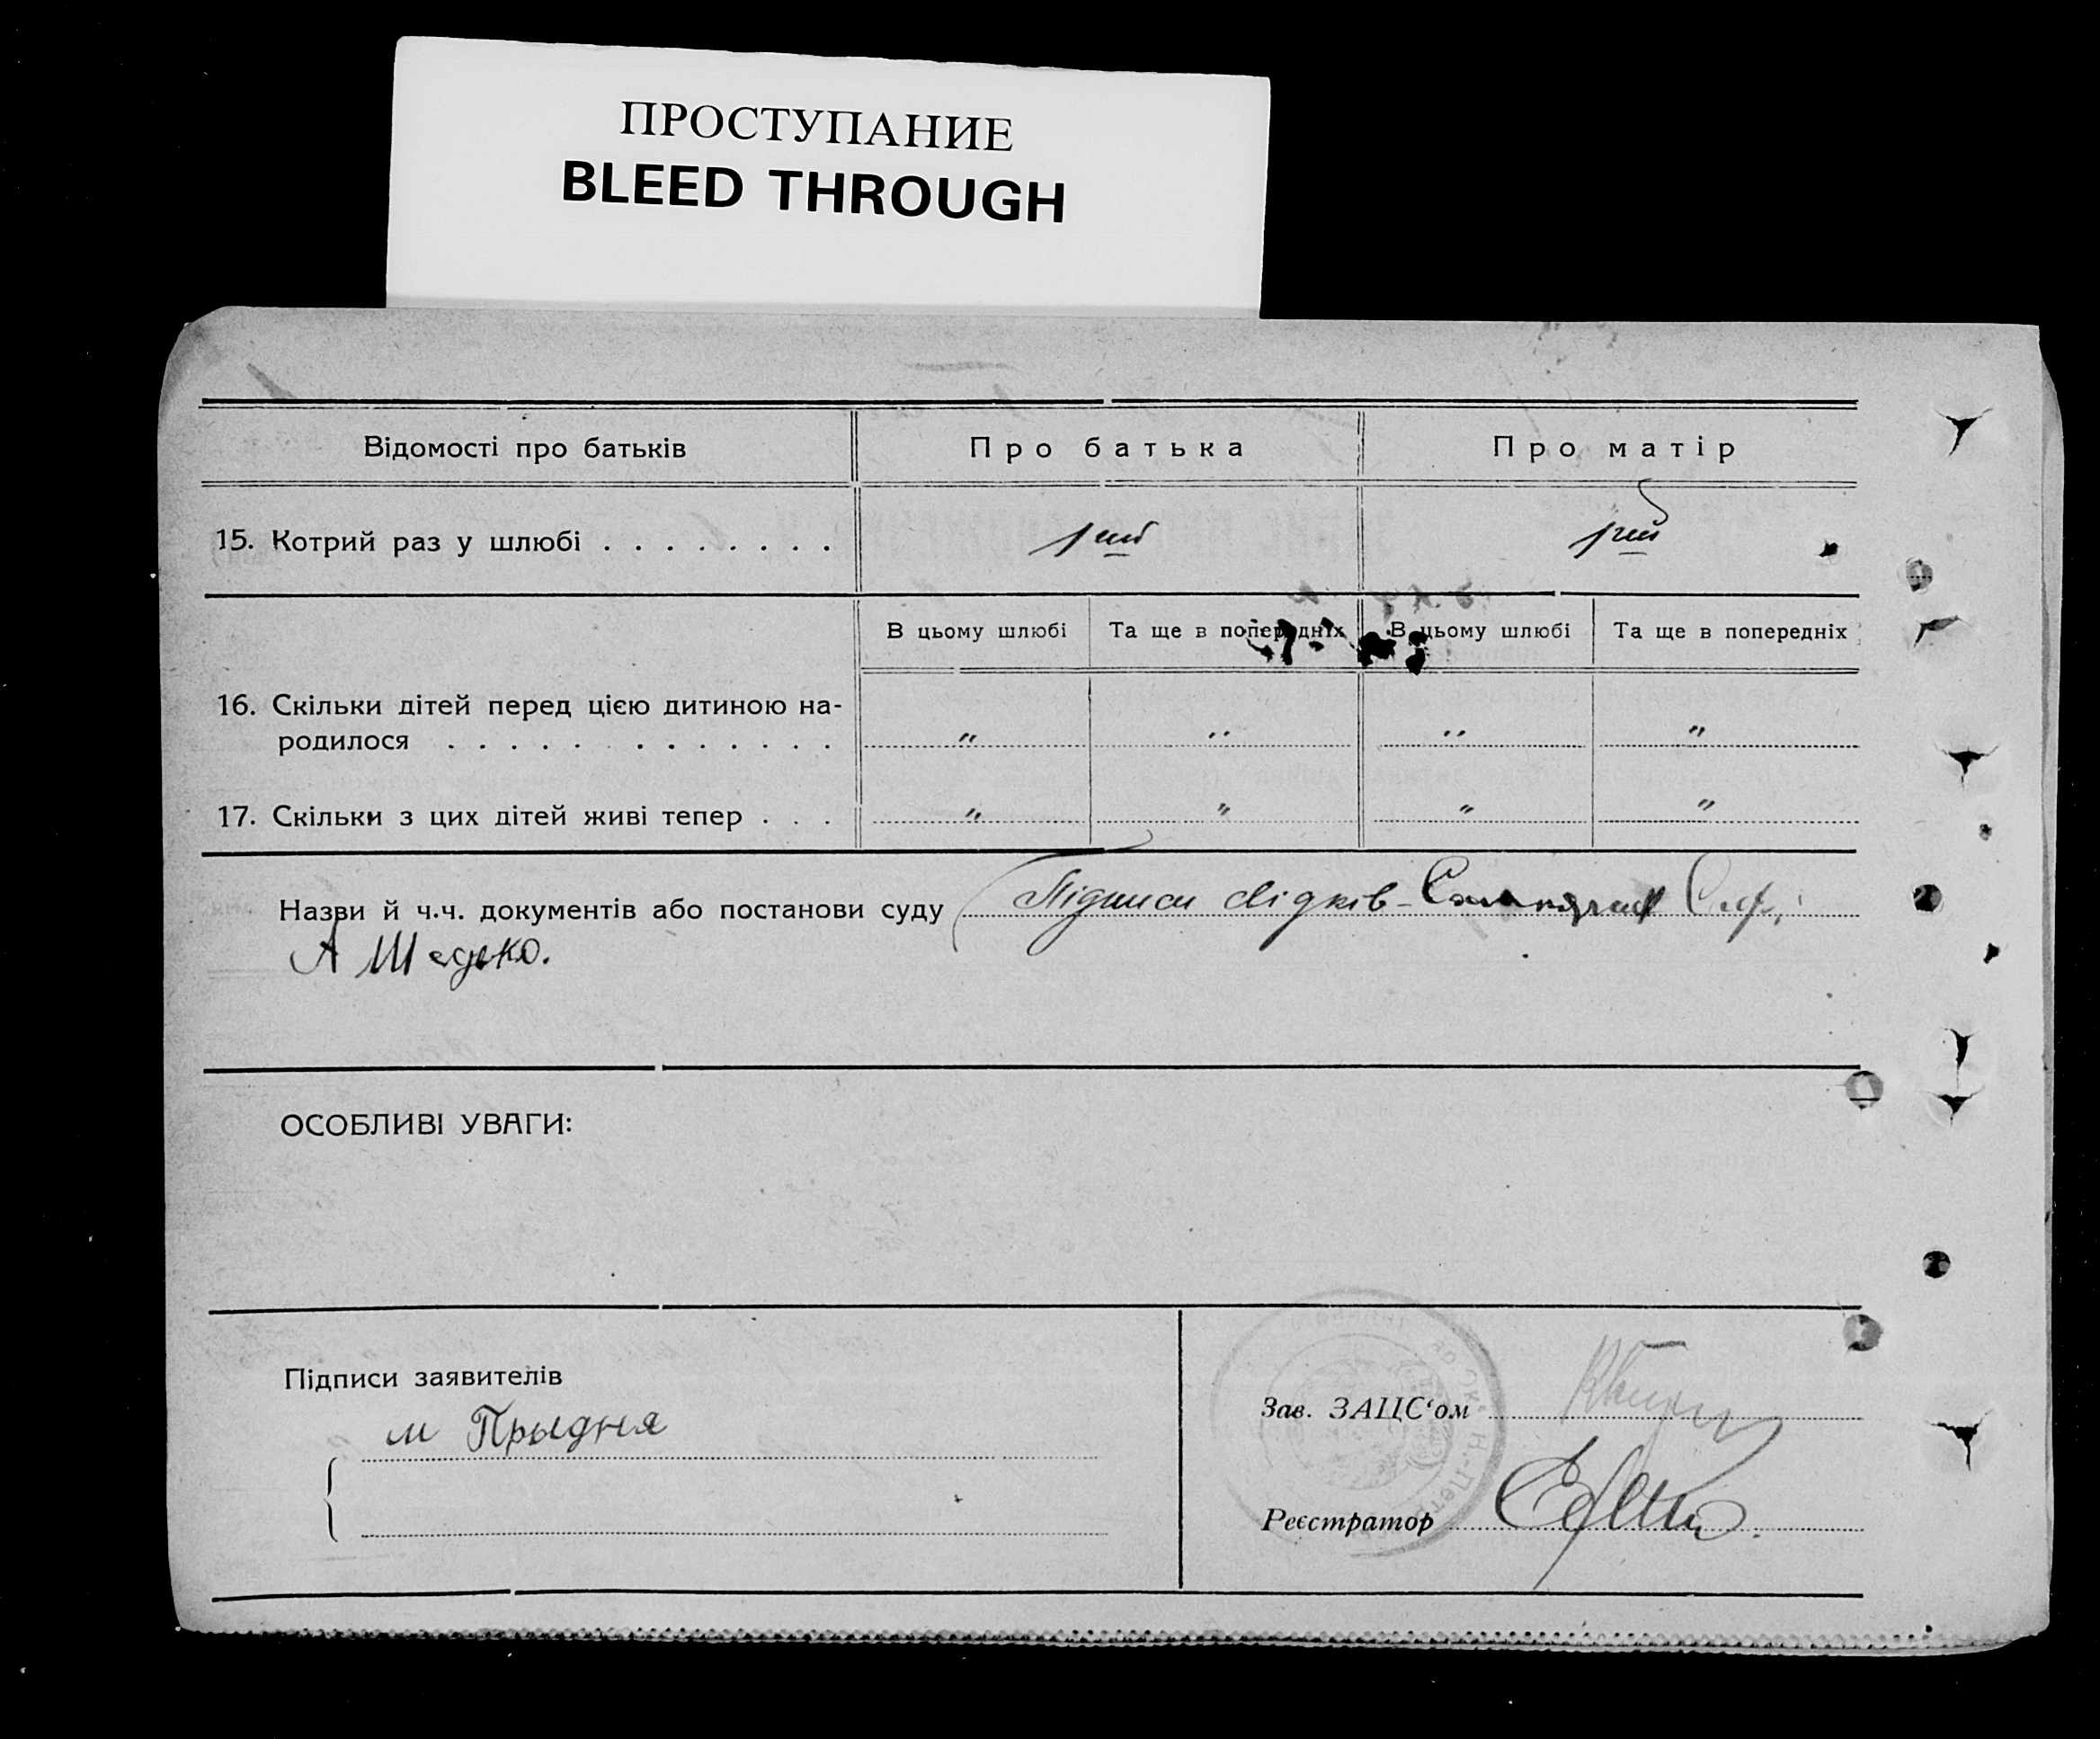 ПРОСТУПАНИЕ
BLEED THROUGH
Відомості про батьків Про батька Про матір
15. Котрий раз у шлюбі . . . . . . . . 1ий 1ий
В цьому шлюбі Та ще в попередніх В цьому шлюбі Та ще в попередніх
16. Скільки дітей перед цією дитиною на-
родилося . . . . . . . . . . . . . " " " "
17. Скільки з цих дітей живі тепер . . . " " " "
Назви й ч.ч. документів або постанови суду Підписи свідків -
А Шедько.
ОСОБЛИВІ УВАГИ:
Підписи заявителів
м Прыдня
Зав. ЗАЦС‘ом
Реєстратор